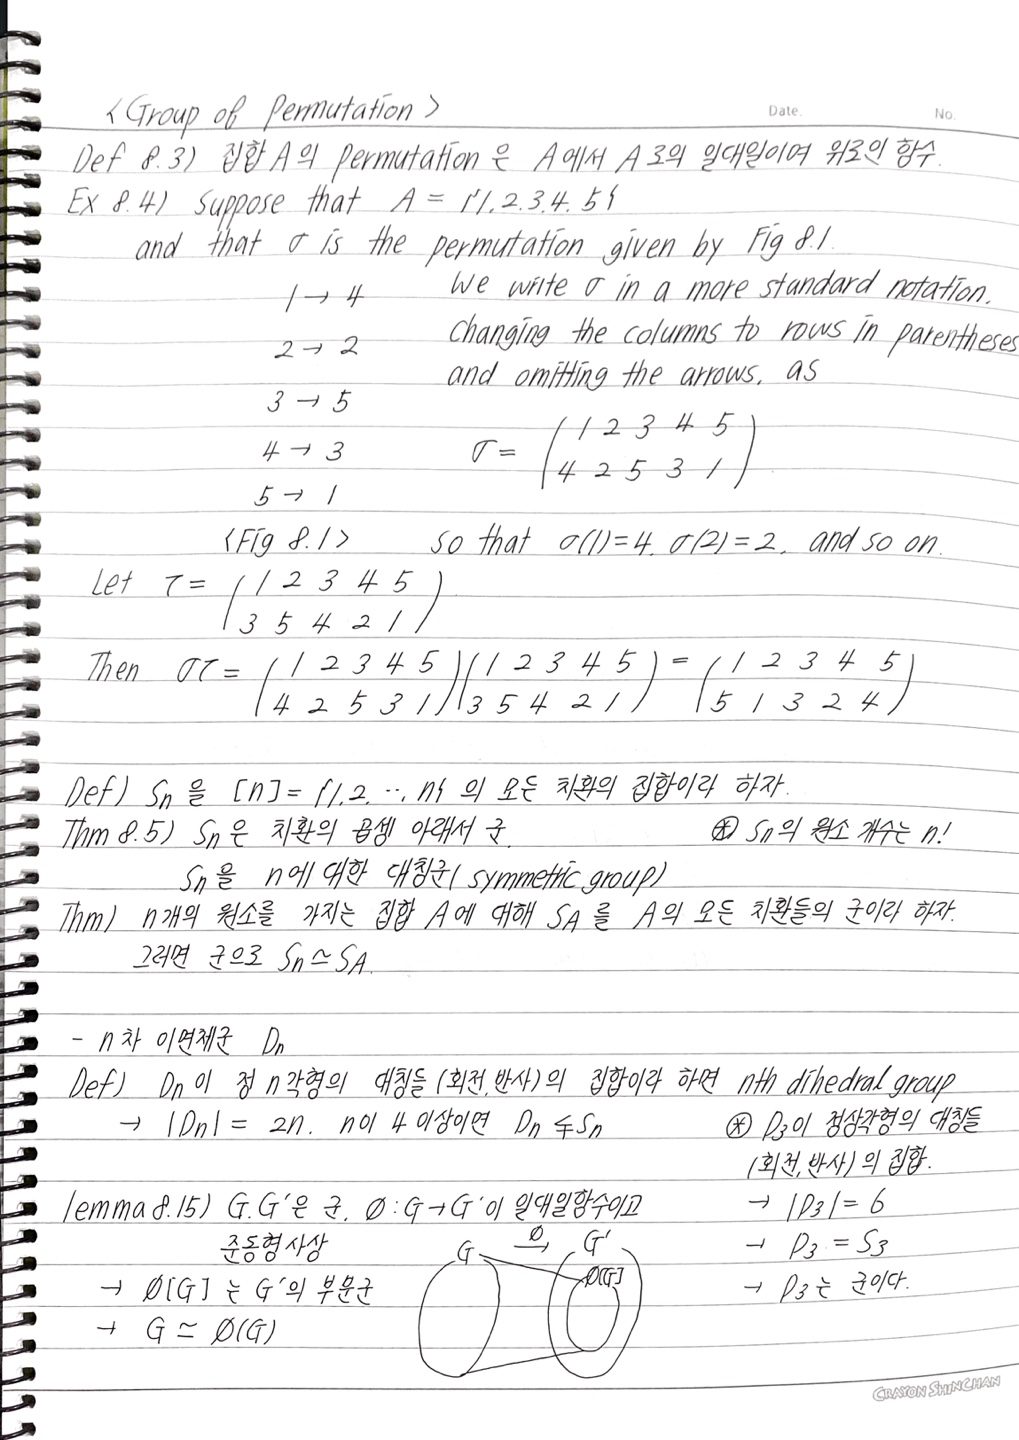 <Group of Permutation>
Date.
No.
Def 8.3) 집합 A의 permutation은 A에서 A로의 일대일이며 위로인 함수.
Ex 8.4) Suppose that A = {1, 2, 3, 4, 5}
and that σ is the permutation given by Fig 8.1.
1 → 4
2 → 2
3 → 5
4 → 3
5 → 1
<Fig 8.1>
We write σ in a more standard notation,
changing the columns to rows in parentheses
and omitting the arrows, as
σ = (1 2 3 4 5
4 2 5 3 1)
so that σ(1)=4, σ(2)=2, and so on.
Let τ = (1 2 3 4 5
3 5 4 2 1)
Then στ = (1 2 3 4 5)(1 2 3 4 5) = (1 2 3 4 5)
(4 2 5 3 1)(3 5 4 2 1) (5 1 3 2 4)
Def) Sn을 [n]={1,2,···,n}의 모든 치환의 집합이라 하자.
Thm 8.5) Sn은 치환의 곱셈 아래서 군. ⊛ Sn의 원소 개수는 n!
Sn을 n에 대한 대칭군(symmetric group)
Thm) n개의 원소를 가지는 집합 A에 대해 SA를 A의 모든 치환들의 군이라 하자.
그러면 군으로 Sn ≃ SA.
- n차 이면체군 Dn
Def) Dn이 정 n각형의 대칭들(회전,반사)의 집합이라 하면 nth dihedral group
→ |Dn| = 2n. n이 4 이상이면 Dn ≨ Sn
⊛ D3이 정삼각형의 대칭들
(회전,반사)의 집합.
→ |D3| = 6
→ D3 = S3
→ D3는 군이다.
lemma 8.15) G, G'은 군, ∅ : G → G'이 일대일함수이고
준동형사상
→ ∅[G]는 G'의 부분군
→ G ≃ ∅(G)
G ∅→ G'
∅[G]
CRAYON SHINCHAN